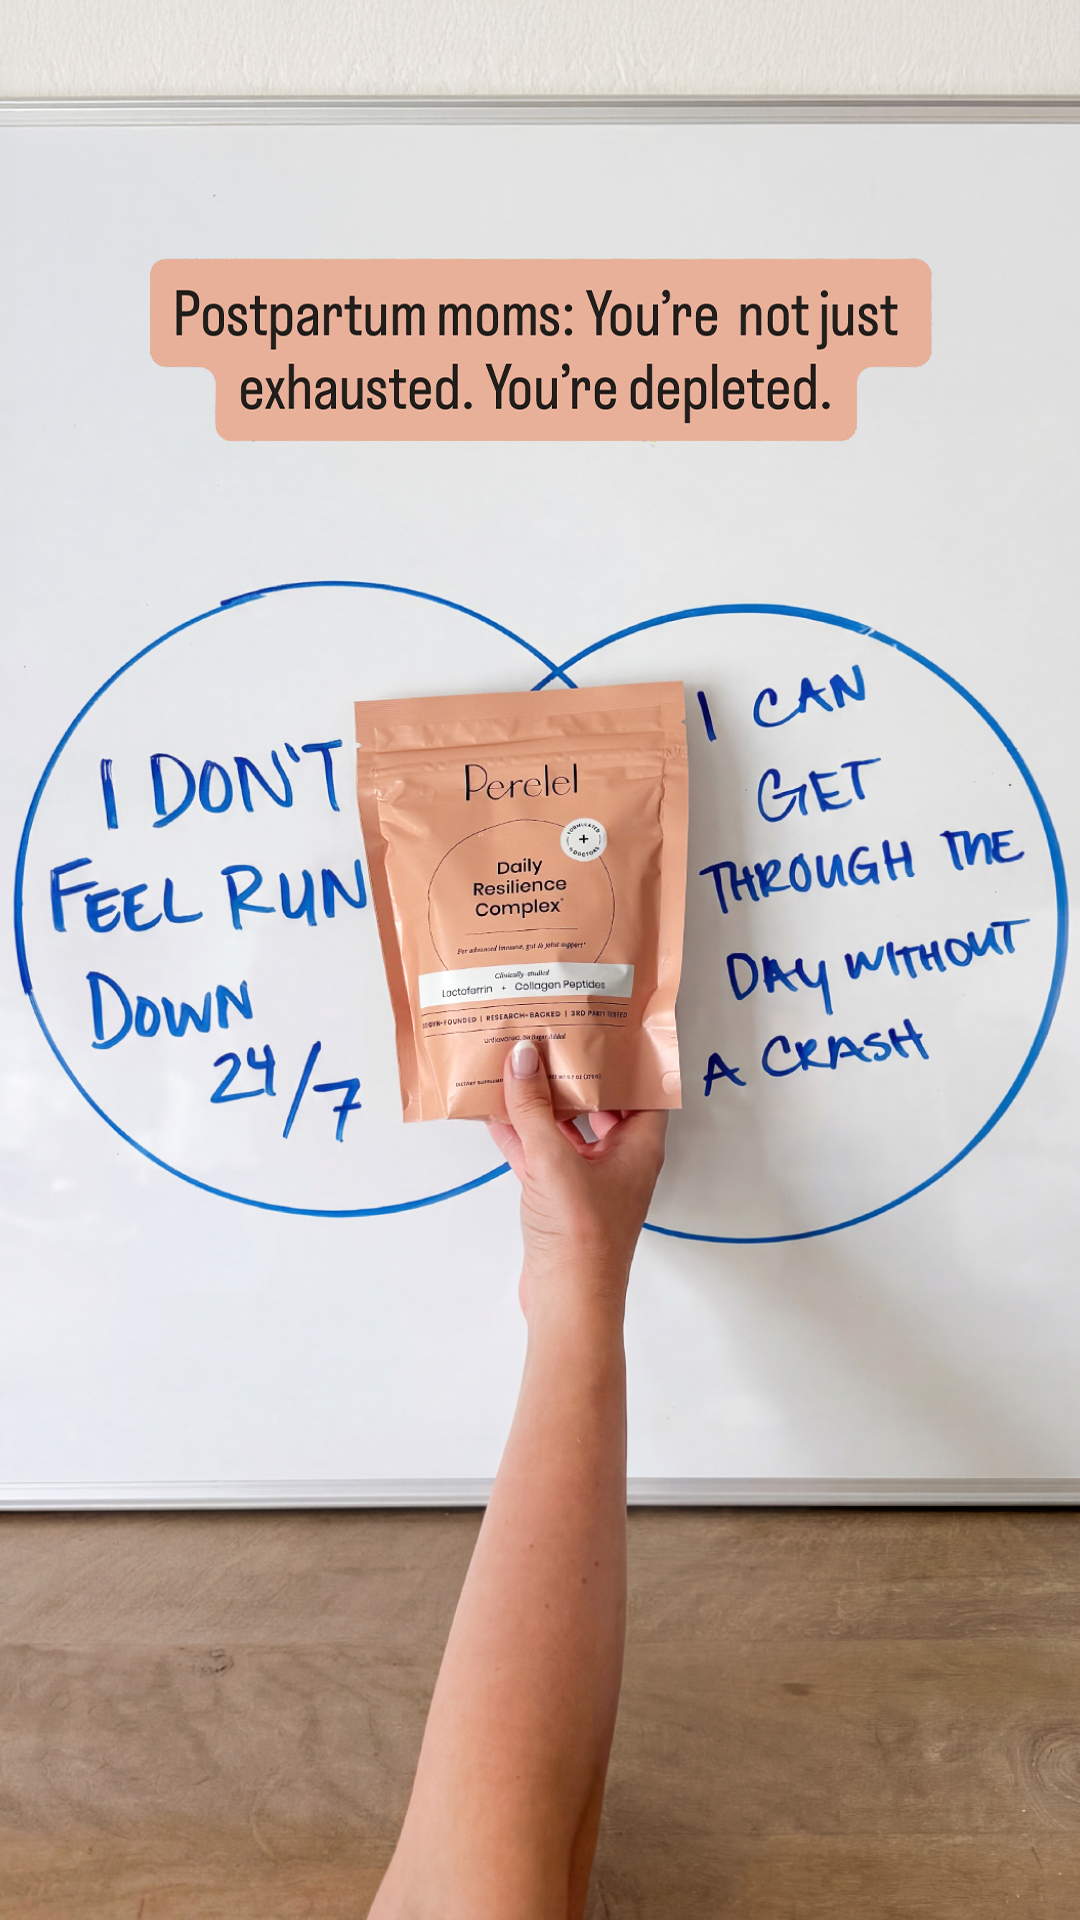 Postpartum moms: You're  not just
exhausted. You're depleted.
I DON'T
FEEL RUN
DOWN
24/7
I CAN
GET
THROUGH THE
DAY WITHOUT
A CRASH
Perelel
FORMULATED
+
DOCTORS
Daily
Resilience
Complex
For advanced immune, gut & joint support*
Clinically-studied
Lactoferrin + Collagen Peptides
FOUNDED | RESEARCH-BACKED | 3RD PARTY TESTED
Unflavored, No Sugar Added
DIETARY
NET WT 9.7 OZ (275G)